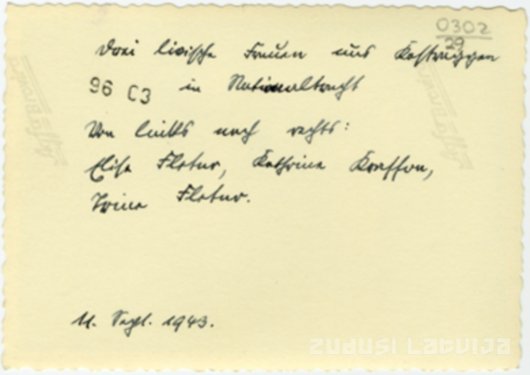 0302
29
Drei livische Frauen aus Kostrüggen
96 C3 in Nationaltracht
Von links nach rechts:
Elisa Fleter, Kathrine Kreffon,
Irine Fleter.
11. Sept. 1943.
ZUDUSI LATVIJA